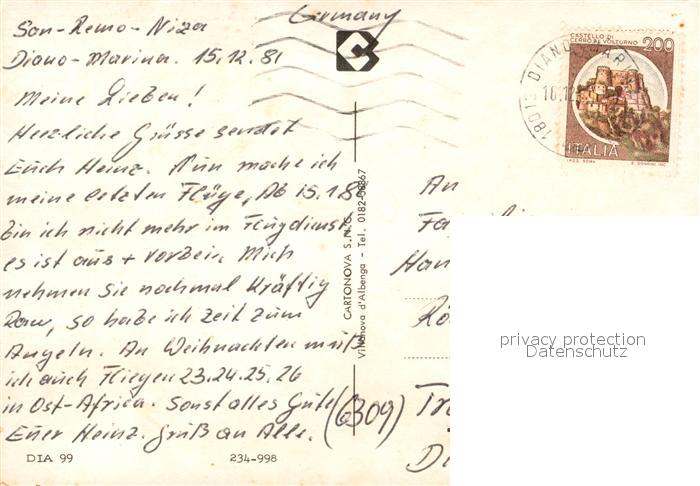 Germany
San-Remo-Niza
Diano-Marina. 15.12.81
Meine Lieben!
Herzliche Grüsse sendet
Euch Heinz. Nun mache ich
meine letzten Flüge, Ab 15.1.8
bin ich nicht mehr im Flugdienst
es ist aus + vorbein. Mich
nehmen sie nochmal kräftig
Ran, so habe ich Zeit zum
Angeln. An Weihnachten muß
ich auch Fliegen 23.24.25.26
in Ost-Africa. Sonst alles Gute
Euer Heinz. Gruß an Alle.
DIA 99
234-998
CARTONOVA S.N.C.
Villanova d'Albenga - Tel. 0182-58867
CASTELLO DI
CERRO AL VOLTURNO
200
ITALIA
I.P.Z.S. ROMA
18013 DIANO MAR
16.12
An
Fa
Han
(6309)
privacy protection
Datenschutz